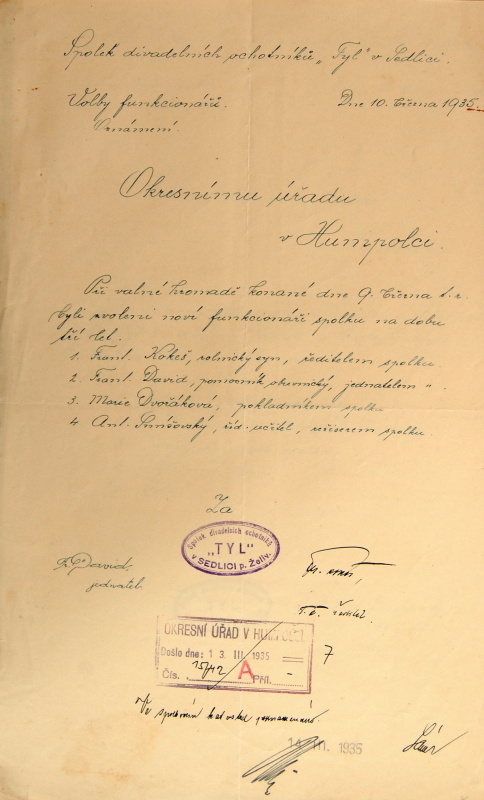 Spolek divadelních ochotníků „Tyl" v Sedlici.
Volby funkcionářů.
Dne 10. března 1935.
Oznámení.
Okresnímu úřadu
v Humpolci.
Při valné hromadě konané dne 9. března t.r.
byli zvoleni noví funkcionáři spolku na dobu
tří let.
1. Frant. Kokeš, rolnický syn, ředitelem spolku
2. Frant. David, pomocník obuvnický, jednatelem "
3. Marie Dvořáková, pokladníkem spolku
4. Ant. říd. učitel, režiserem spolku.
Za
Spolek divadelních ochotníků
„TYL"
v SEDLICI p. Želiv.
David.
jednatel.
Fr. Kokeš,
t. č. ředitel
OKRESNÍ ÚŘAD V HUMPOLCI
Došlo dne: 13. III. 1935
7
Čís. 15742 A Příl. -
Ve spolkovém katastru poznamenáno.
14. III. 1935